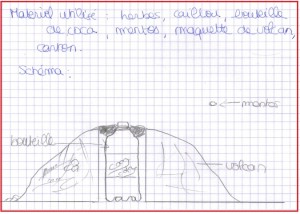 Matériel utilisé : herbes, caillou, bouteille
de coca, mentos, maquette de volcan,
carton.
Schéma.
mentos
bouteille
volcan
coca